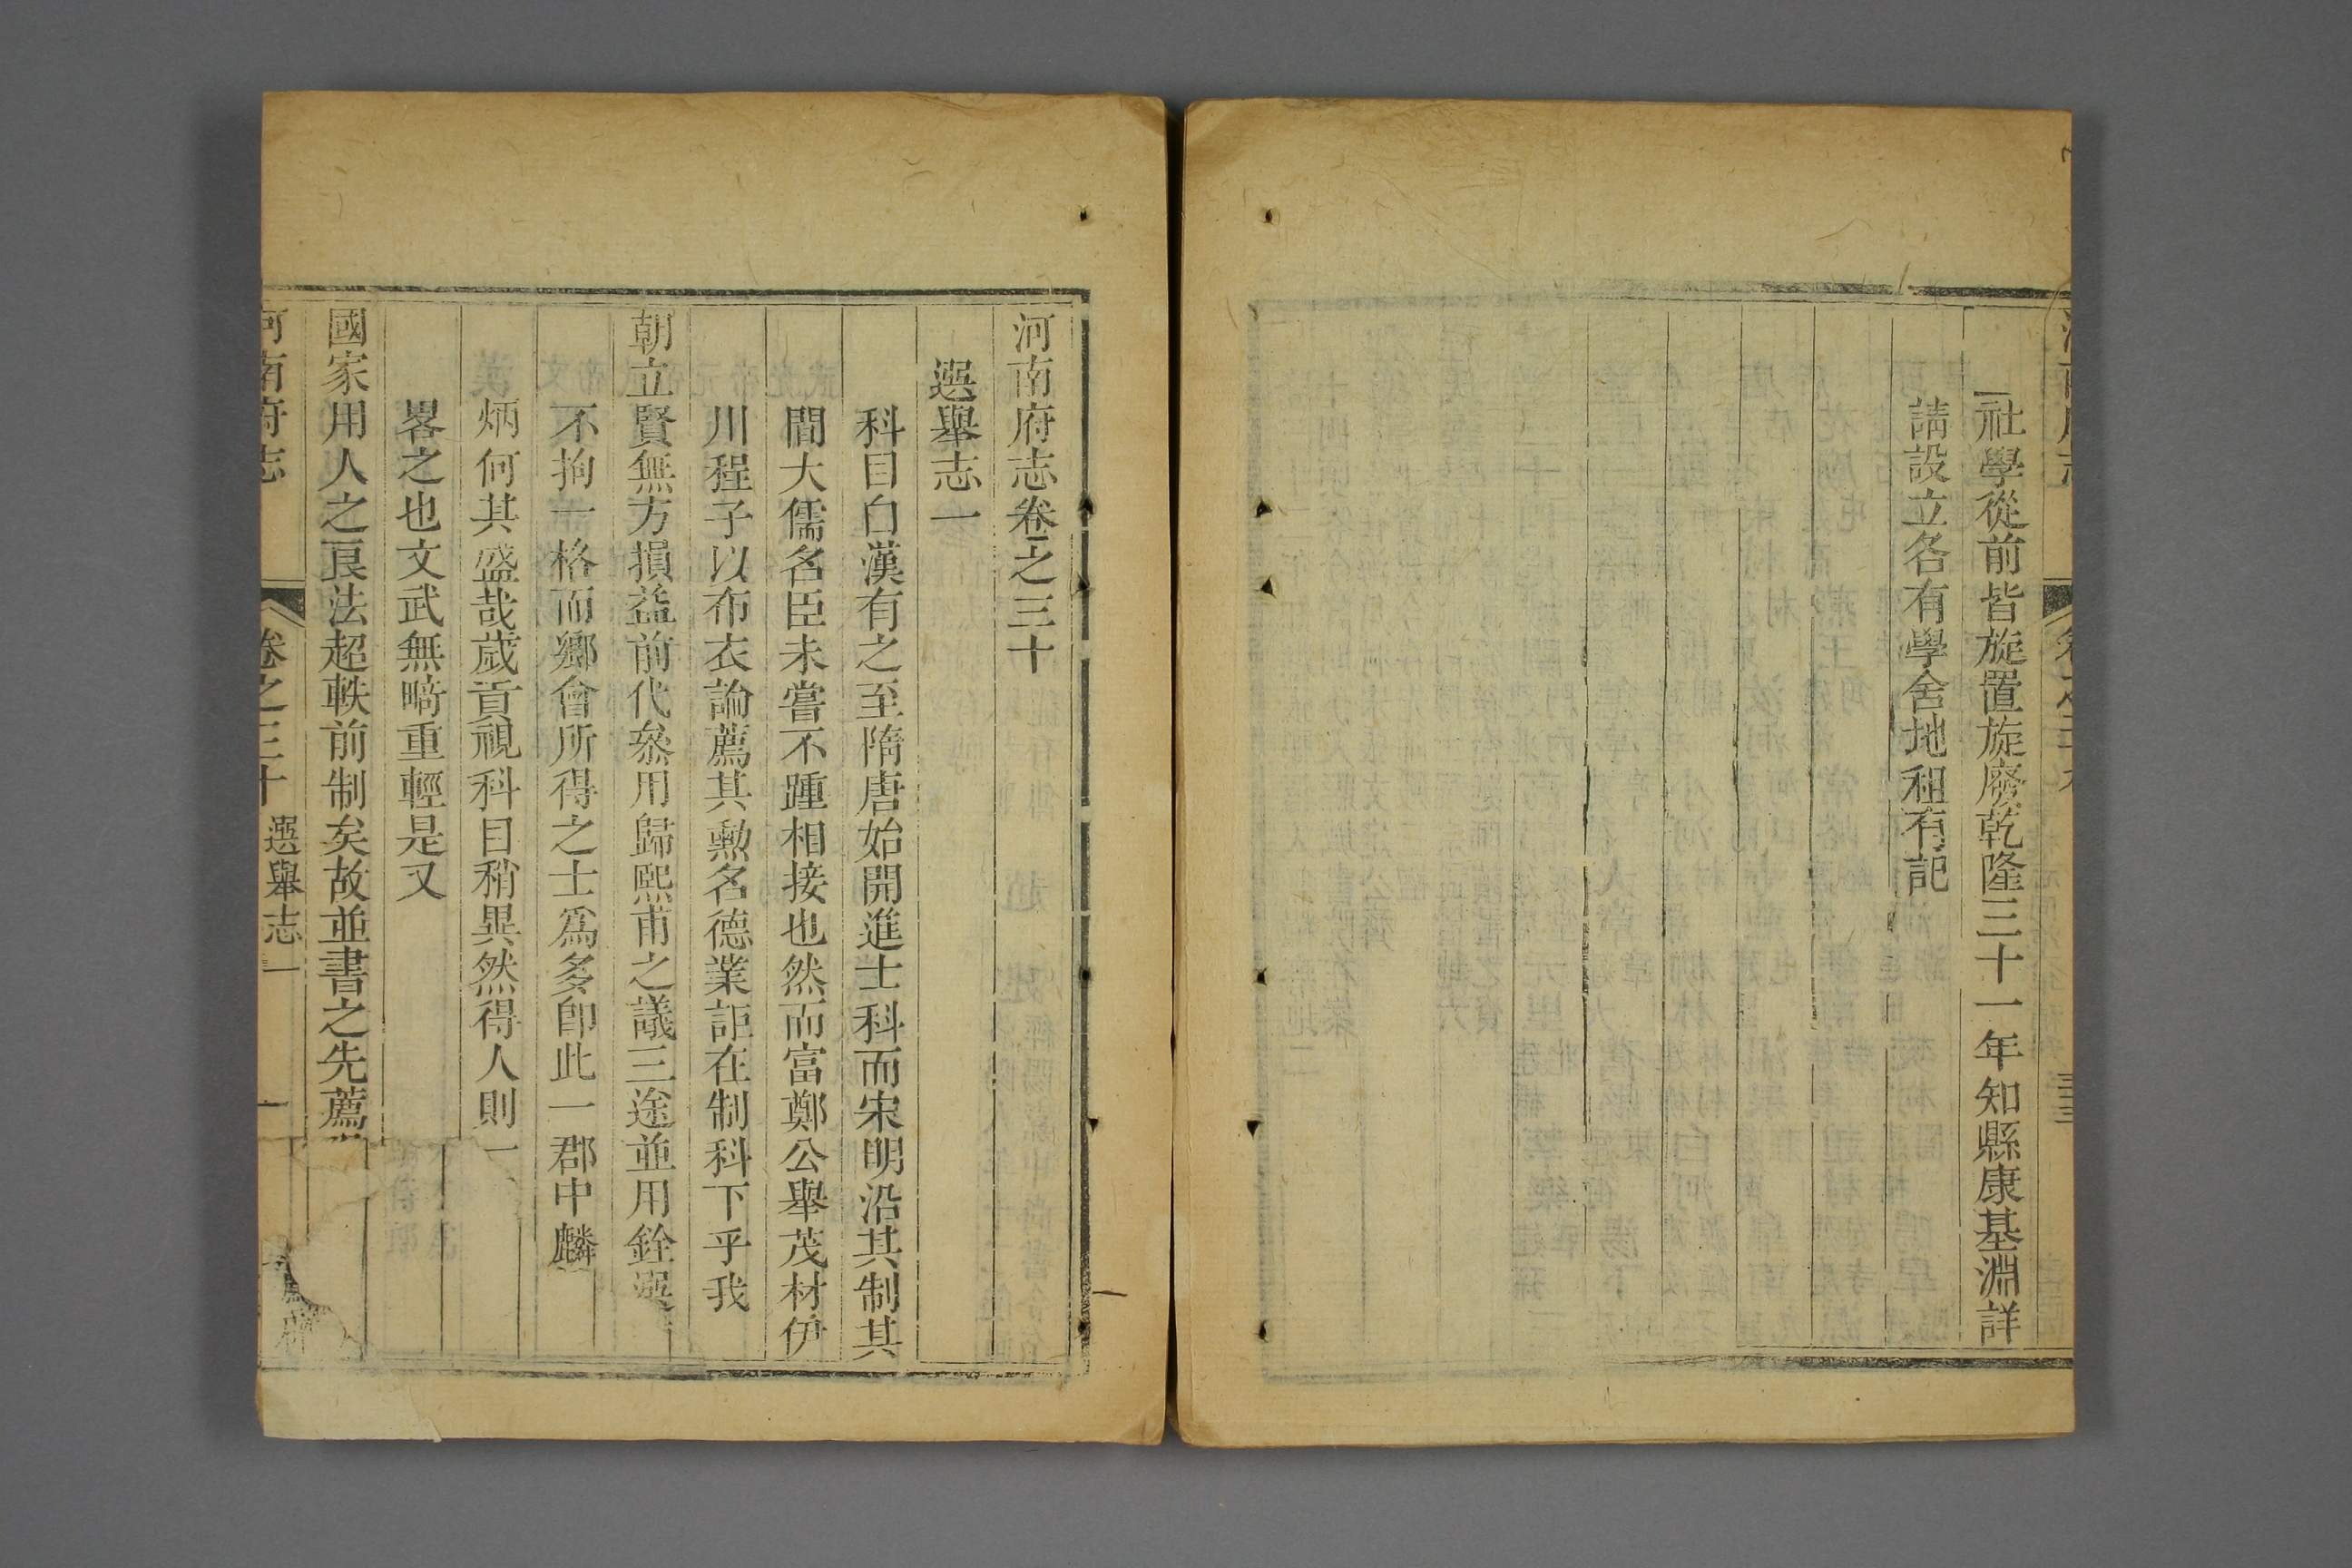 社學從前皆旋置旋廢乾隆三十一年知縣康基淵詳
請設立各有學舍地租有記
河南府志卷之三十
選舉志一
科目自漢有之至隋唐始開進士科而宋明沿其制其
間大儒名臣未嘗不踵相接也然而富鄭公舉茂材伊
川程子以布衣論薦其勲名德業詎在制科下乎我
朝立賢無方損益前代叅用歸熙甫之議三途並用銓選
不拘一格而鄉會所得之士爲多卽此一郡中麟
炳何其盛哉歲貢視科目稍異然得人則一
畧之也文武無畸重輕是又
國家用人之良法超軼前制矣故並書之先薦
河南府志
卷之三十
選舉志一
一